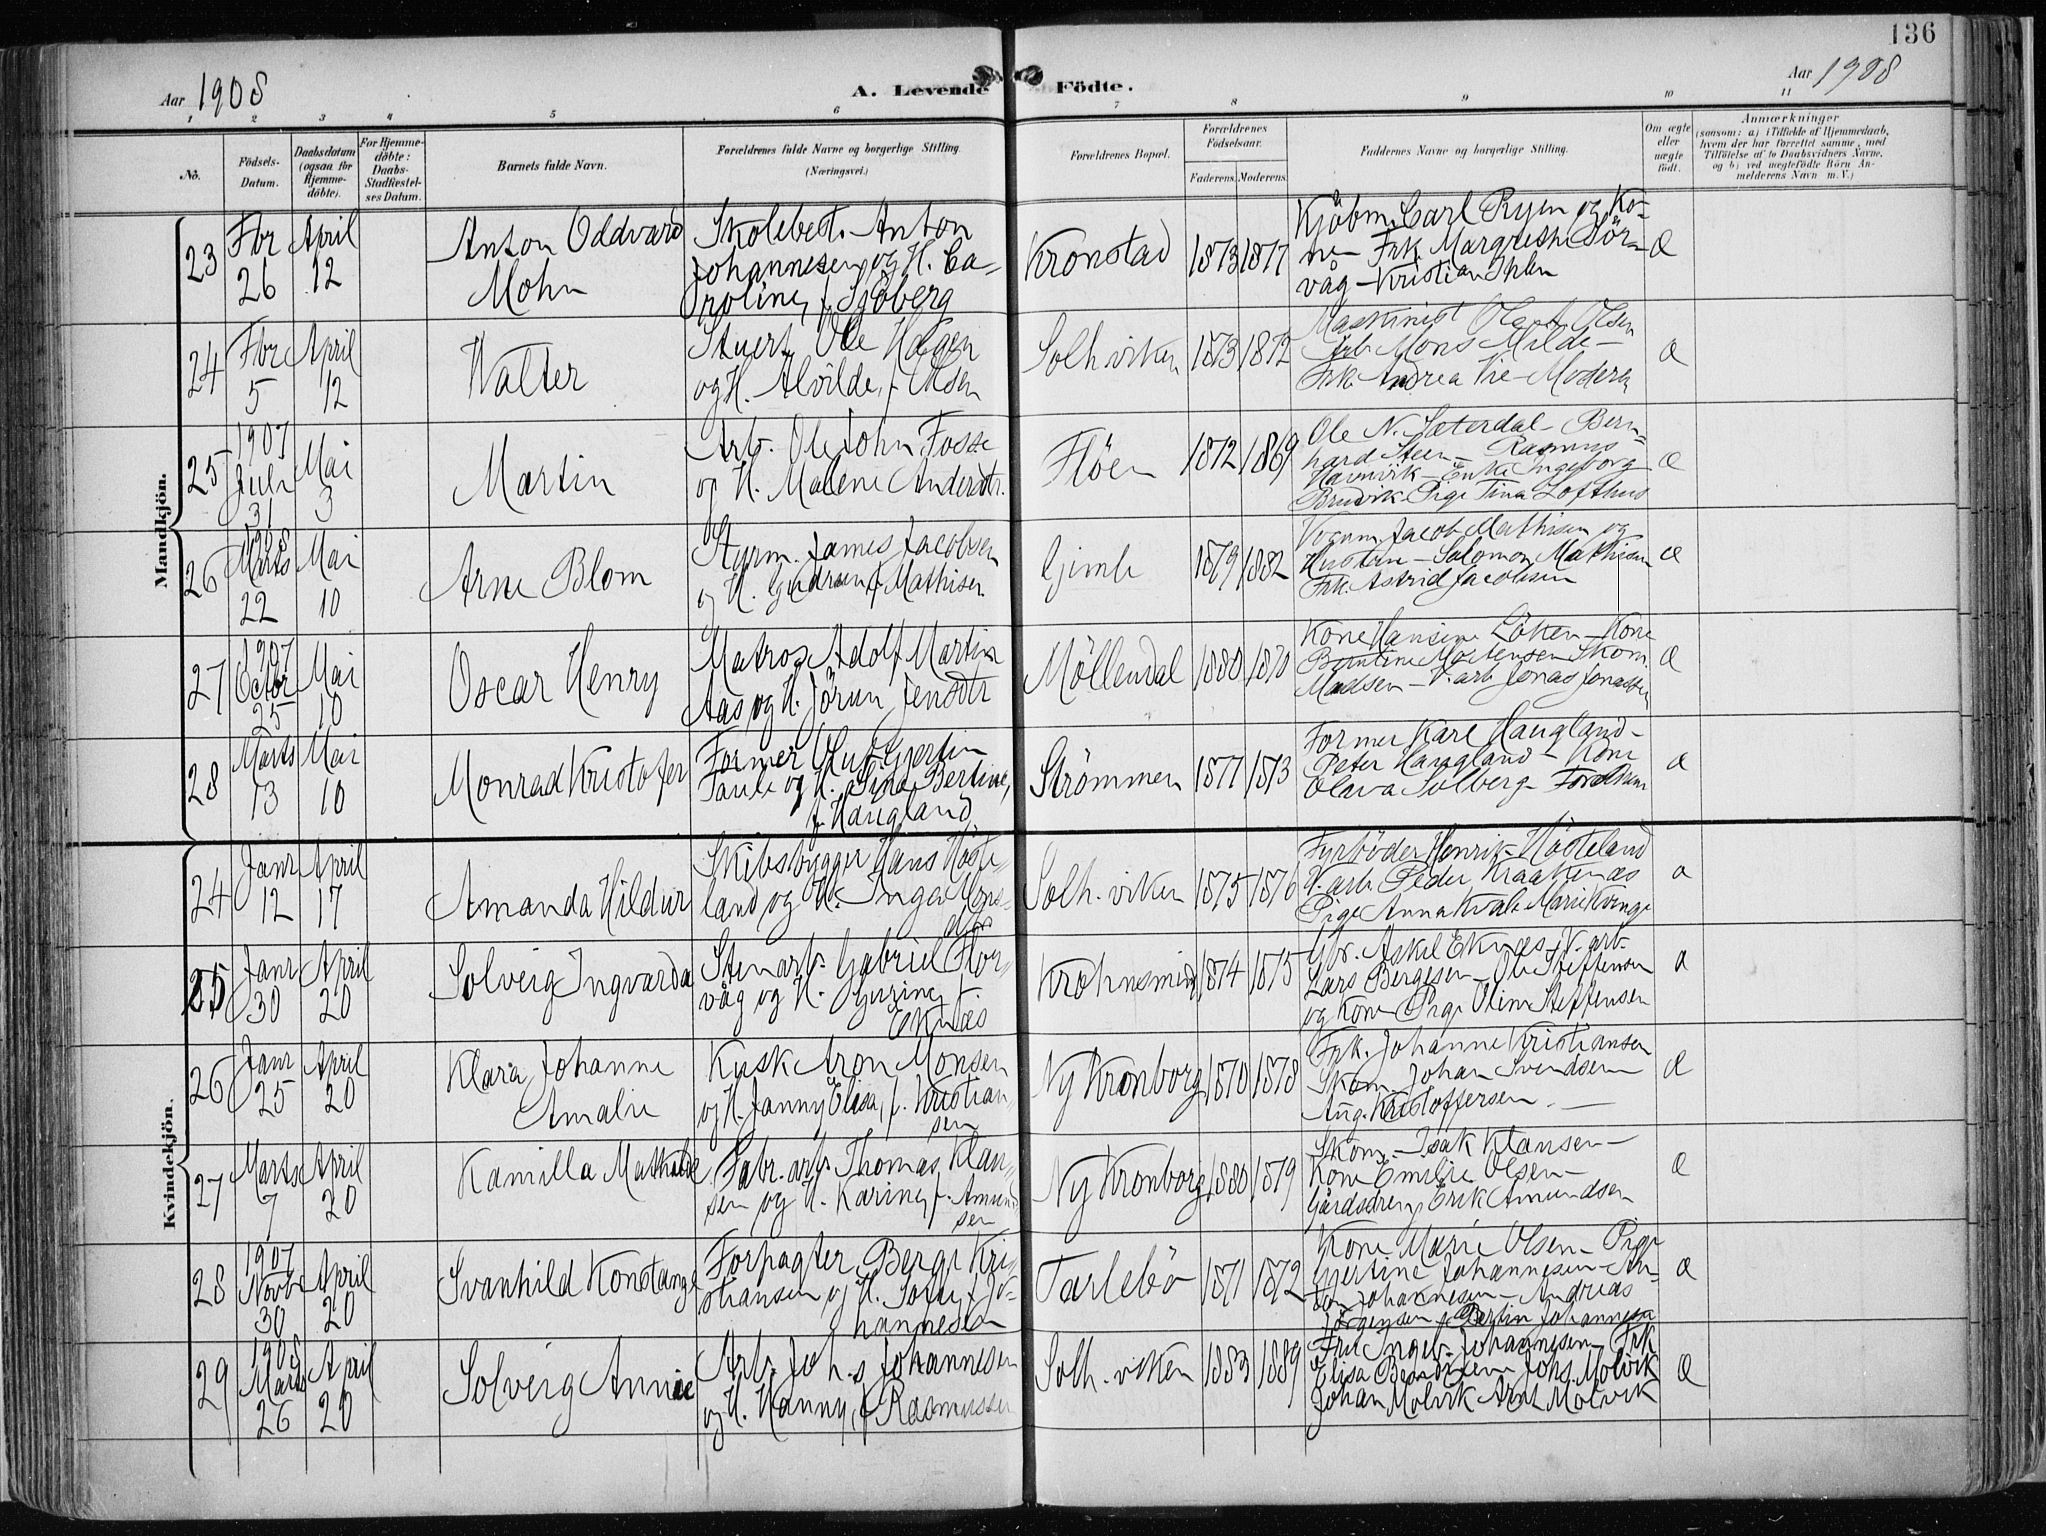 136
Aar 1908
A. Levende Födte.
Aar 1908
1 2 3 4 5 6 7 8 9 10 11
No.
Födsels-Datum.
Daabsdatum (ogsaa for Hjemmedöbte).
For Hjemmedöbte: Daabs-Stadfæstelses Datum.
Barnets fulde Navn.
Forældrenes fulde Navne og borgerlige Stilling. (Næringsvei.)
Forældrenes Bopæl.
Forældrenes Födselsaar.
Faderens. Moderens.
Faddernes Navne og borgerlige Stilling.
Om ægte eller uægte födt.
Anmærkninger
(saasom: a) i Tilfælde af Hjemmedaab, hvem der har forrettet samme, med Tilföielse af to Daabsvidners Navne, og b) ved uægtefödte Börn Anmelderens Navn m. V.)
Mandkjön.
23 Fbr 26 April 12
Anton Oddvard Mohn
Skolebest. Anton
Johannesen og H. Ca-
roline, f. Sjöberg
Kronstad 1873 1877
Kjöbm. Carl Ryen og Ko-
ne - Frk. Margrethe Sör-
våg - Kristian Ihlen
Æ
24 Fbr 5 April 12
Walter
Stuert Ole Hagen
og H. Alvilde, f. Olsen
Solh.viken 1873 1872
Maskinist Ole A. Olsen
Arb. Mons Milde -
Frk. Andrea Vie - Moderen
Æ
25 1907 Juli 31 Mai 3
Martin
Arb. Ole John Fosse
og H. Malene Andersdtr.
Flöen 1872 1869
Ole N. Sæterdal - Bern-
hard Steen - Rasmus
Havnvik - Enke Ingeborg
Brudvik - Pige Tina Lofthus
Æ
26 1908 Marts 22 Mai 10
Arne Blom
Styrm. James Jacobsen
og H. Gudrun, f. Mathisen
Gimle 1879 1882
Vognm. Jacob Mathisen og
Hustru - Salomon Mathisen
Frk. Astrid Jacobsen
Æ
27 1907 Octbr 25 Mai 10
Oscar Henry
Matros Adolf Martin
Aas og H. Jörun Jensdtr
Möllendal 1880 1870
Kone Hansine Löken - Kone
Berntine Mortensen Skom.
Madsen - V.arb. Jonas Jonassen
Æ
28 Marts 13 Mai 10
Monrad Kristofer
Former Oluf Gjertin
Paule og H. Signe Bertine,
f. Haugland
Strömmen 1877 1873
Former Kare Haugland -
Peter Haugland - Kone
Olava Solberg - Forældrene
Æ
Kvindekjön.
24 Janr 12 April 17
Amanda Hildur
Skibsbygger Hans Höste-
land og H. Inga Mons-
dtr
Solh.viken 1875 1876
Fyrböder Henrik Hösteland
V.arb. Peder Kraakenæs
Pige Anna Kvale Marie Kvinge
Æ
25 Janr 30 April 20
Solveig Ingvarda
Stenarb. Gabriel Flor-
våg og H. Gurine, f.
Eknæs
Krohnsminde 1874 1875
Gbr. Askel Eknæs - V.arb.
Lars Bergesen - Ole Steffensen
og Kone Pige Oline Steffensen
Æ
26 Janr 25 April 20
Klara Johanne Amalie
Kusk Aron Monsen
og H. Janny Elisa, f. Kristian-
sen
Ny Kronborg 1870 1878
Frk. Johanne Kristiansen
Skom. Johan Svendsen
Aug. Kristoffersen. -
Æ
27 Marts 7 April 20
Kamilla Mathilde
Fabr.arb. Thomas Klau-
sen og H. Karine, f. Amund-
sen
Ny Kronborg 1880 1879
Skom. Isak Klausen -
Kone Emilie Olsen -
Gårdsdreng Erik Amundsen
Æ
28 1907 Novbr 30 April 20
Svanhild Konstanse
Forpagter Berge Kri-
stiansen og H. Sofie, f. Jo-
hannesen
Tarlebö 1871 1872
Kone Marie Olsen - Pige
Gjertine Johannesen - An-
ton Johannesen - Andreas
Jörgensen - Bertin Johannesen
Æ
29 1908 Marts 26 April 20
Solveig Annie
Arb. Joh.s Johannesen
og H. Hanny, f. Rasmussen
Solh.viken 1883 1889
Fru Ingeb. Johannesen - Frk
Elisa Bendixen Johs. Molvik
Johan Molvik Arnt Molvik
Æ